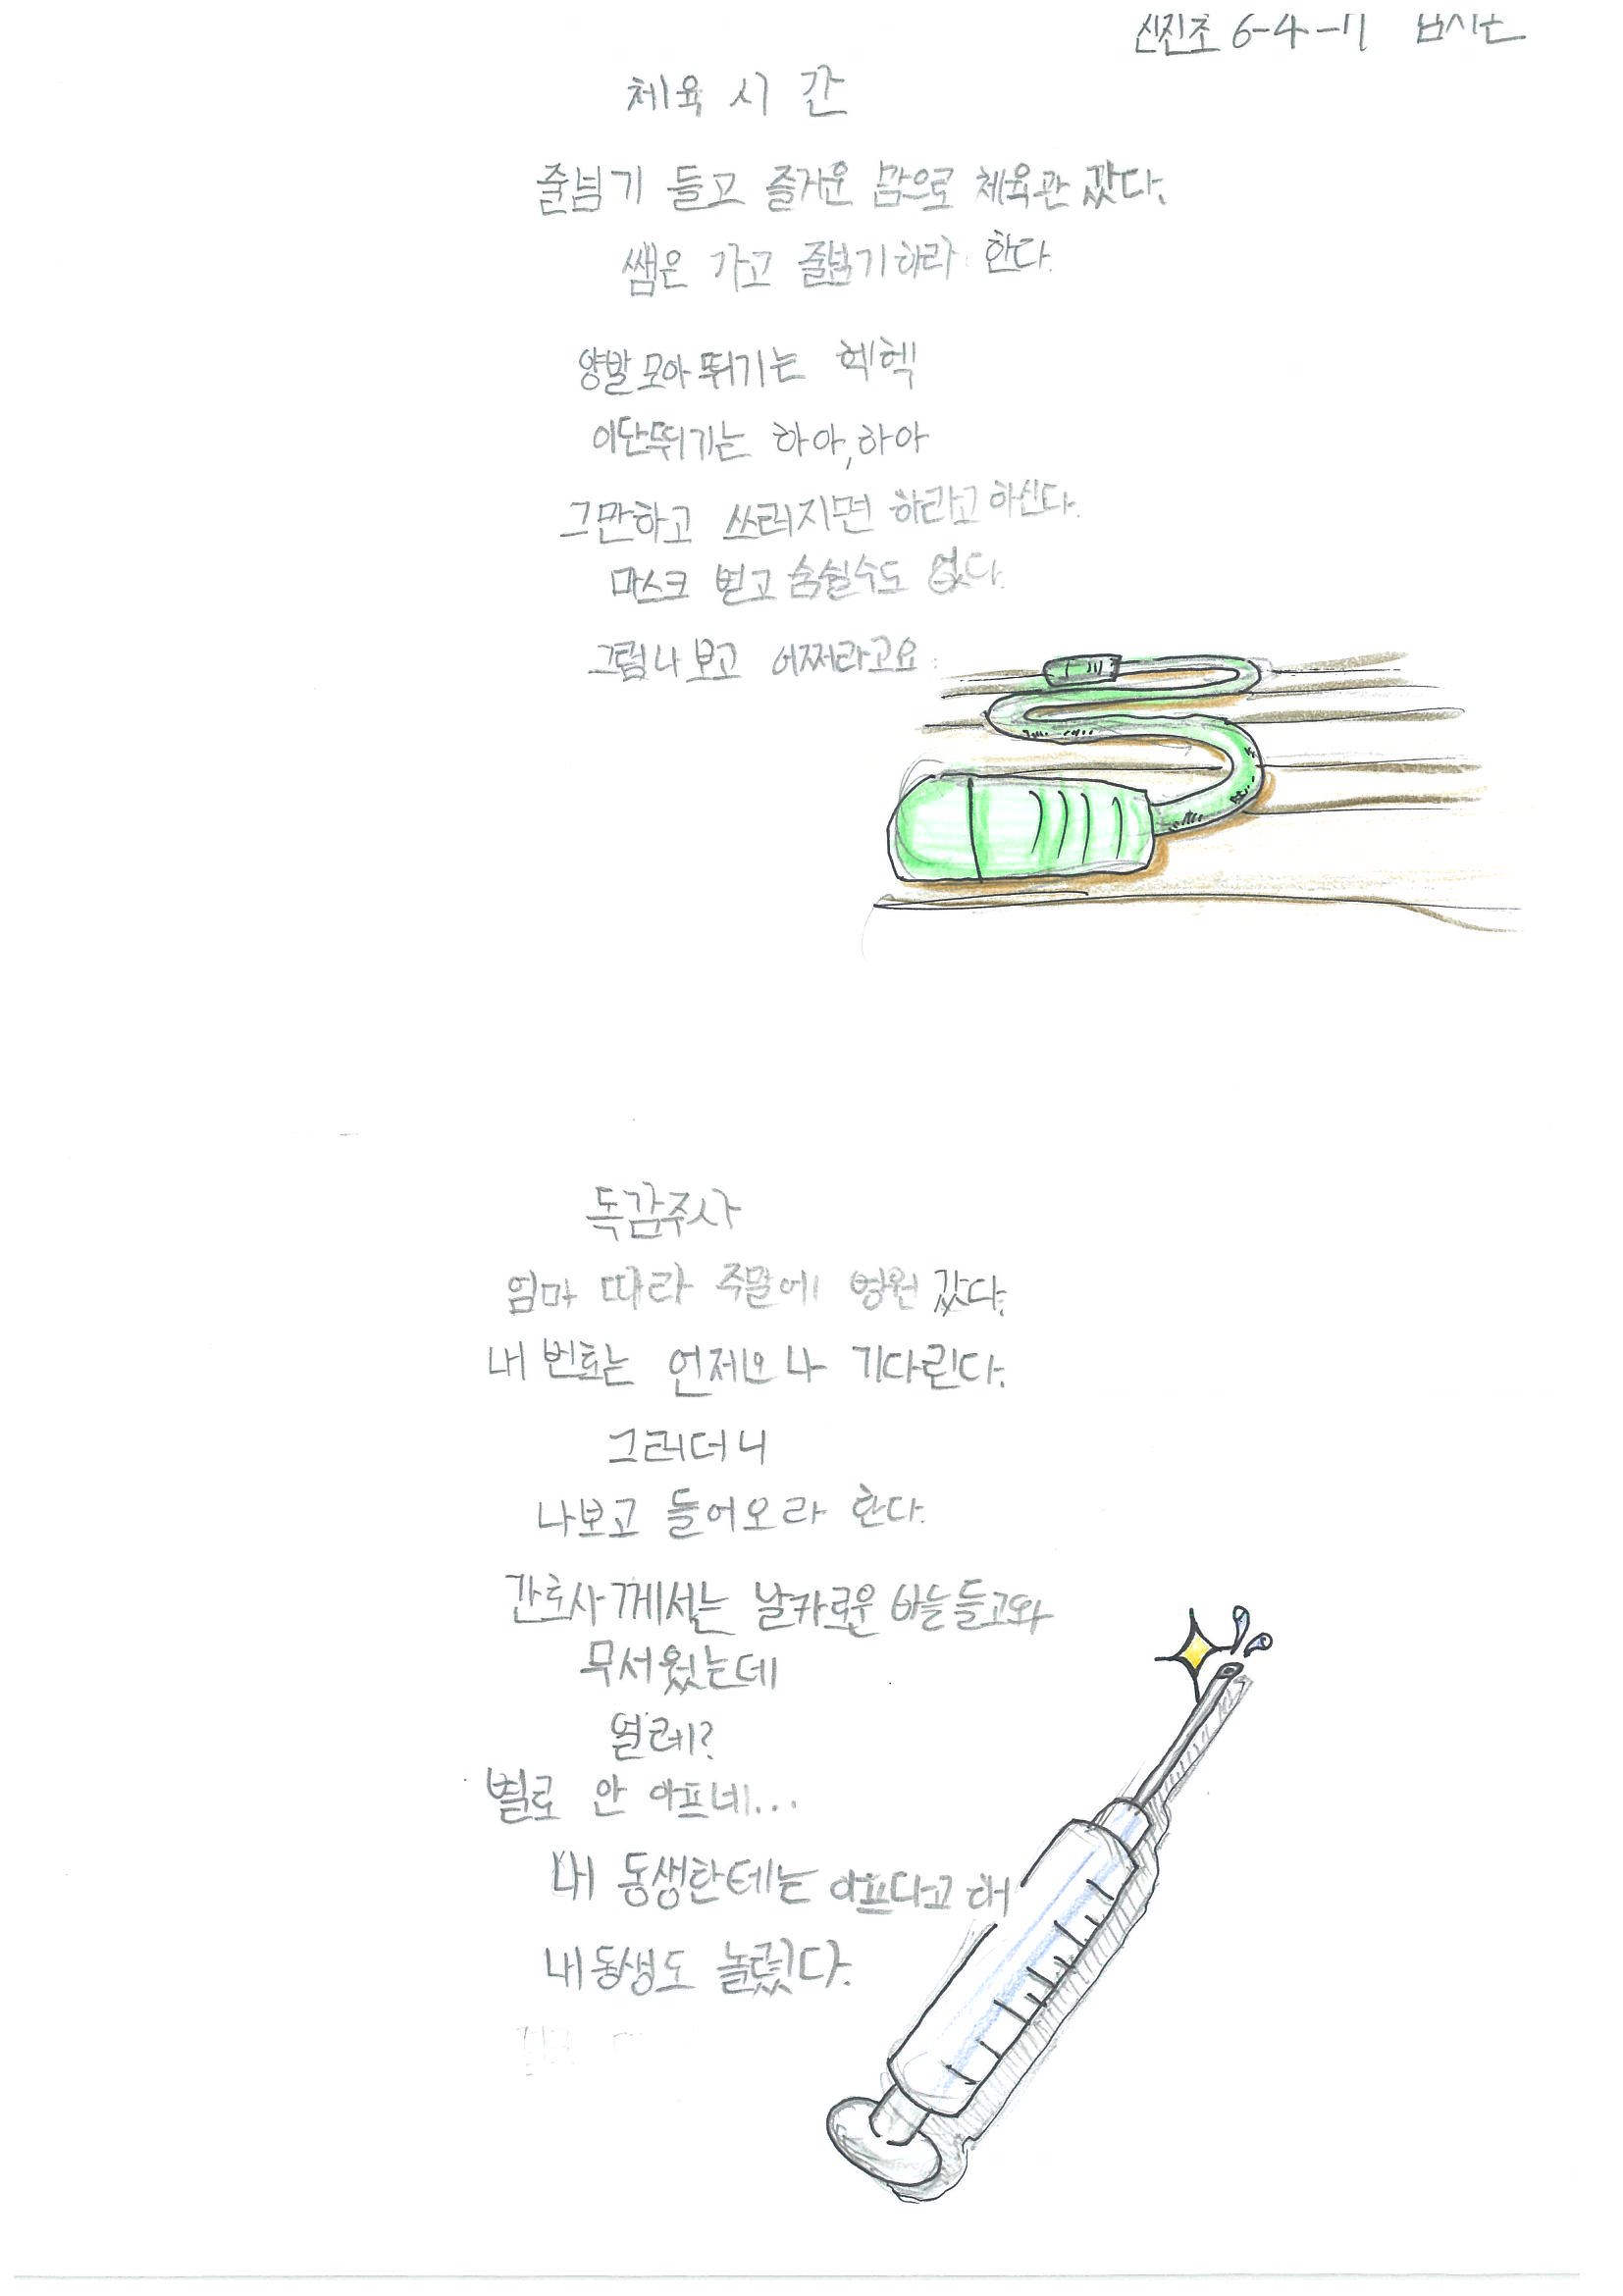 신진초 6-4-11
체육 시 간
줄넘기 들고 즐거운 맘으로 체육관 갔다.
쌤은 가고 줄넘기하라 한다.
양발 모아 뛰기는 헥헥
이단뛰기는 하아,하아
그만하고 쓰러지면 하라고 하신다.
마스크 벋고 숨쉴수도 없다.
그럼 나 보고 어쩌라고요
독감주사
엄마 따라 주말에 병원 갔다.
내 번호는 언제오나 기다린다.
그러더니
나보고 들어오라 한다.
간호사께서는 날카로운 바늘 들고와
무서웠는데
얼레?
별로 안 아프네...
내 동생한테는 아프다고 해
내동생도 놀렸다.